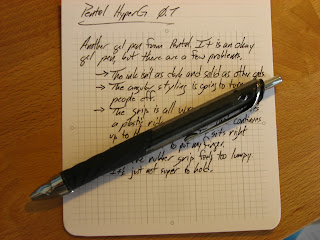 Pentel HyperG 0.7
Another gel pen from Pentel. It is an okay
gel pen, but there are a few problems.
→ The ink isn't as dark and solid as other gels
→ The angular styling is going to turn
people off.
→ The grip is all
a plastic continues
up to the gets right
to put my finger.
rubber grip feels too lumpy.
It's just not super to hold.